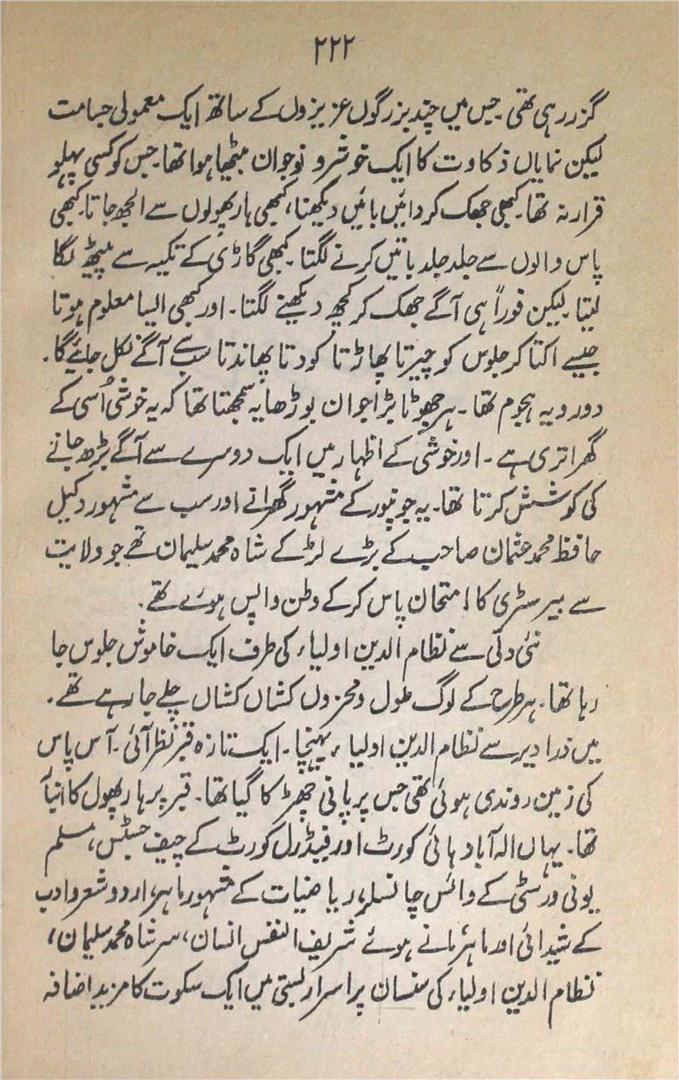 ۲۲۲
گزر رہی تھی۔ جس میں چند بزرگوں عزیزوں کے ساتھ ایک معمولی جسامت
لیکن نمایاں ذکاوت کا ایک خوشرو نوجوان بیٹھا ہوا تھا۔ جس کو کسی پہلو
قرار نہ تھا۔ کبھی جھک کر دائیں بائیں دیکھتا، کبھی ہار پھولوں سے الجھ جاتا۔ کبھی
پاس والوں سے جلد جلد باتیں کرنے لگتا۔ کبھی گاڑی کے تکیہ سے پیٹھ لگا
لیتا۔ لیکن فوراً ہی آگے جھک کر کچھ دیکھنے لگتا۔ اور کبھی ایسا معلوم ہوتا
جیسے اکتا کر جلوس کو چیرتا پھاڑتا کودتا پھاندتا سب سے آگے نکل جائے گا۔
دو رویہ ہجوم تھا۔ ہر چھوٹا بڑا جوان بوڑھا یہ سمجھتا تھا کہ یہ خوشی اُسی کے
گھر اتری ہے۔ اور خوشی کے اظہار میں ایک دوسرے سے آگے بڑھ جانے
کی کوشش کرتا تھا۔ یہ جونپور کے مشہور گھرانے اور سب سے مشہور وکیل
حافظ محمد عثمان صاحب کے بڑے لڑکے شاہ محمد سلیمان تھے جو ولایت
سے بیرسٹری کا امتحان پاس کر کے وطن واپس ہوئے تھے۔
نئی دلی سے نظام الدین اولیاء کی طرف ایک خاموش جلوس جا
رہا تھا۔ ہر طرح کے لوگ ملول و محزوں کشاں کشاں چلے جا رہے تھے۔
میں ذرا دیر سے نظام الدین اولیاء پہنچا۔ ایک تازہ قبر نظر آئی۔ آس پاس
کی زمین روندی ہوئی تھی جس پر پانی چھڑکا گیا تھا۔ قبر پر ہار پھول کا انبار
تھا۔ یہاں الہ آباد ہائی کورٹ اور فیڈرل کورٹ کے چیف جسٹس، مسلم
یونی ورسٹی کے وائس چانسلر، ریاضیات کے مشہور ماہر، اردو شعر و ادب
کے شیدائی اور ماہر مانے ہوئے شریف النفس انسان، سر شاہ محمد سلیمان،
نظام الدین اولیاء کی سنسان پر اسرار بستی میں ایک سکوت کا مزید اضافہ